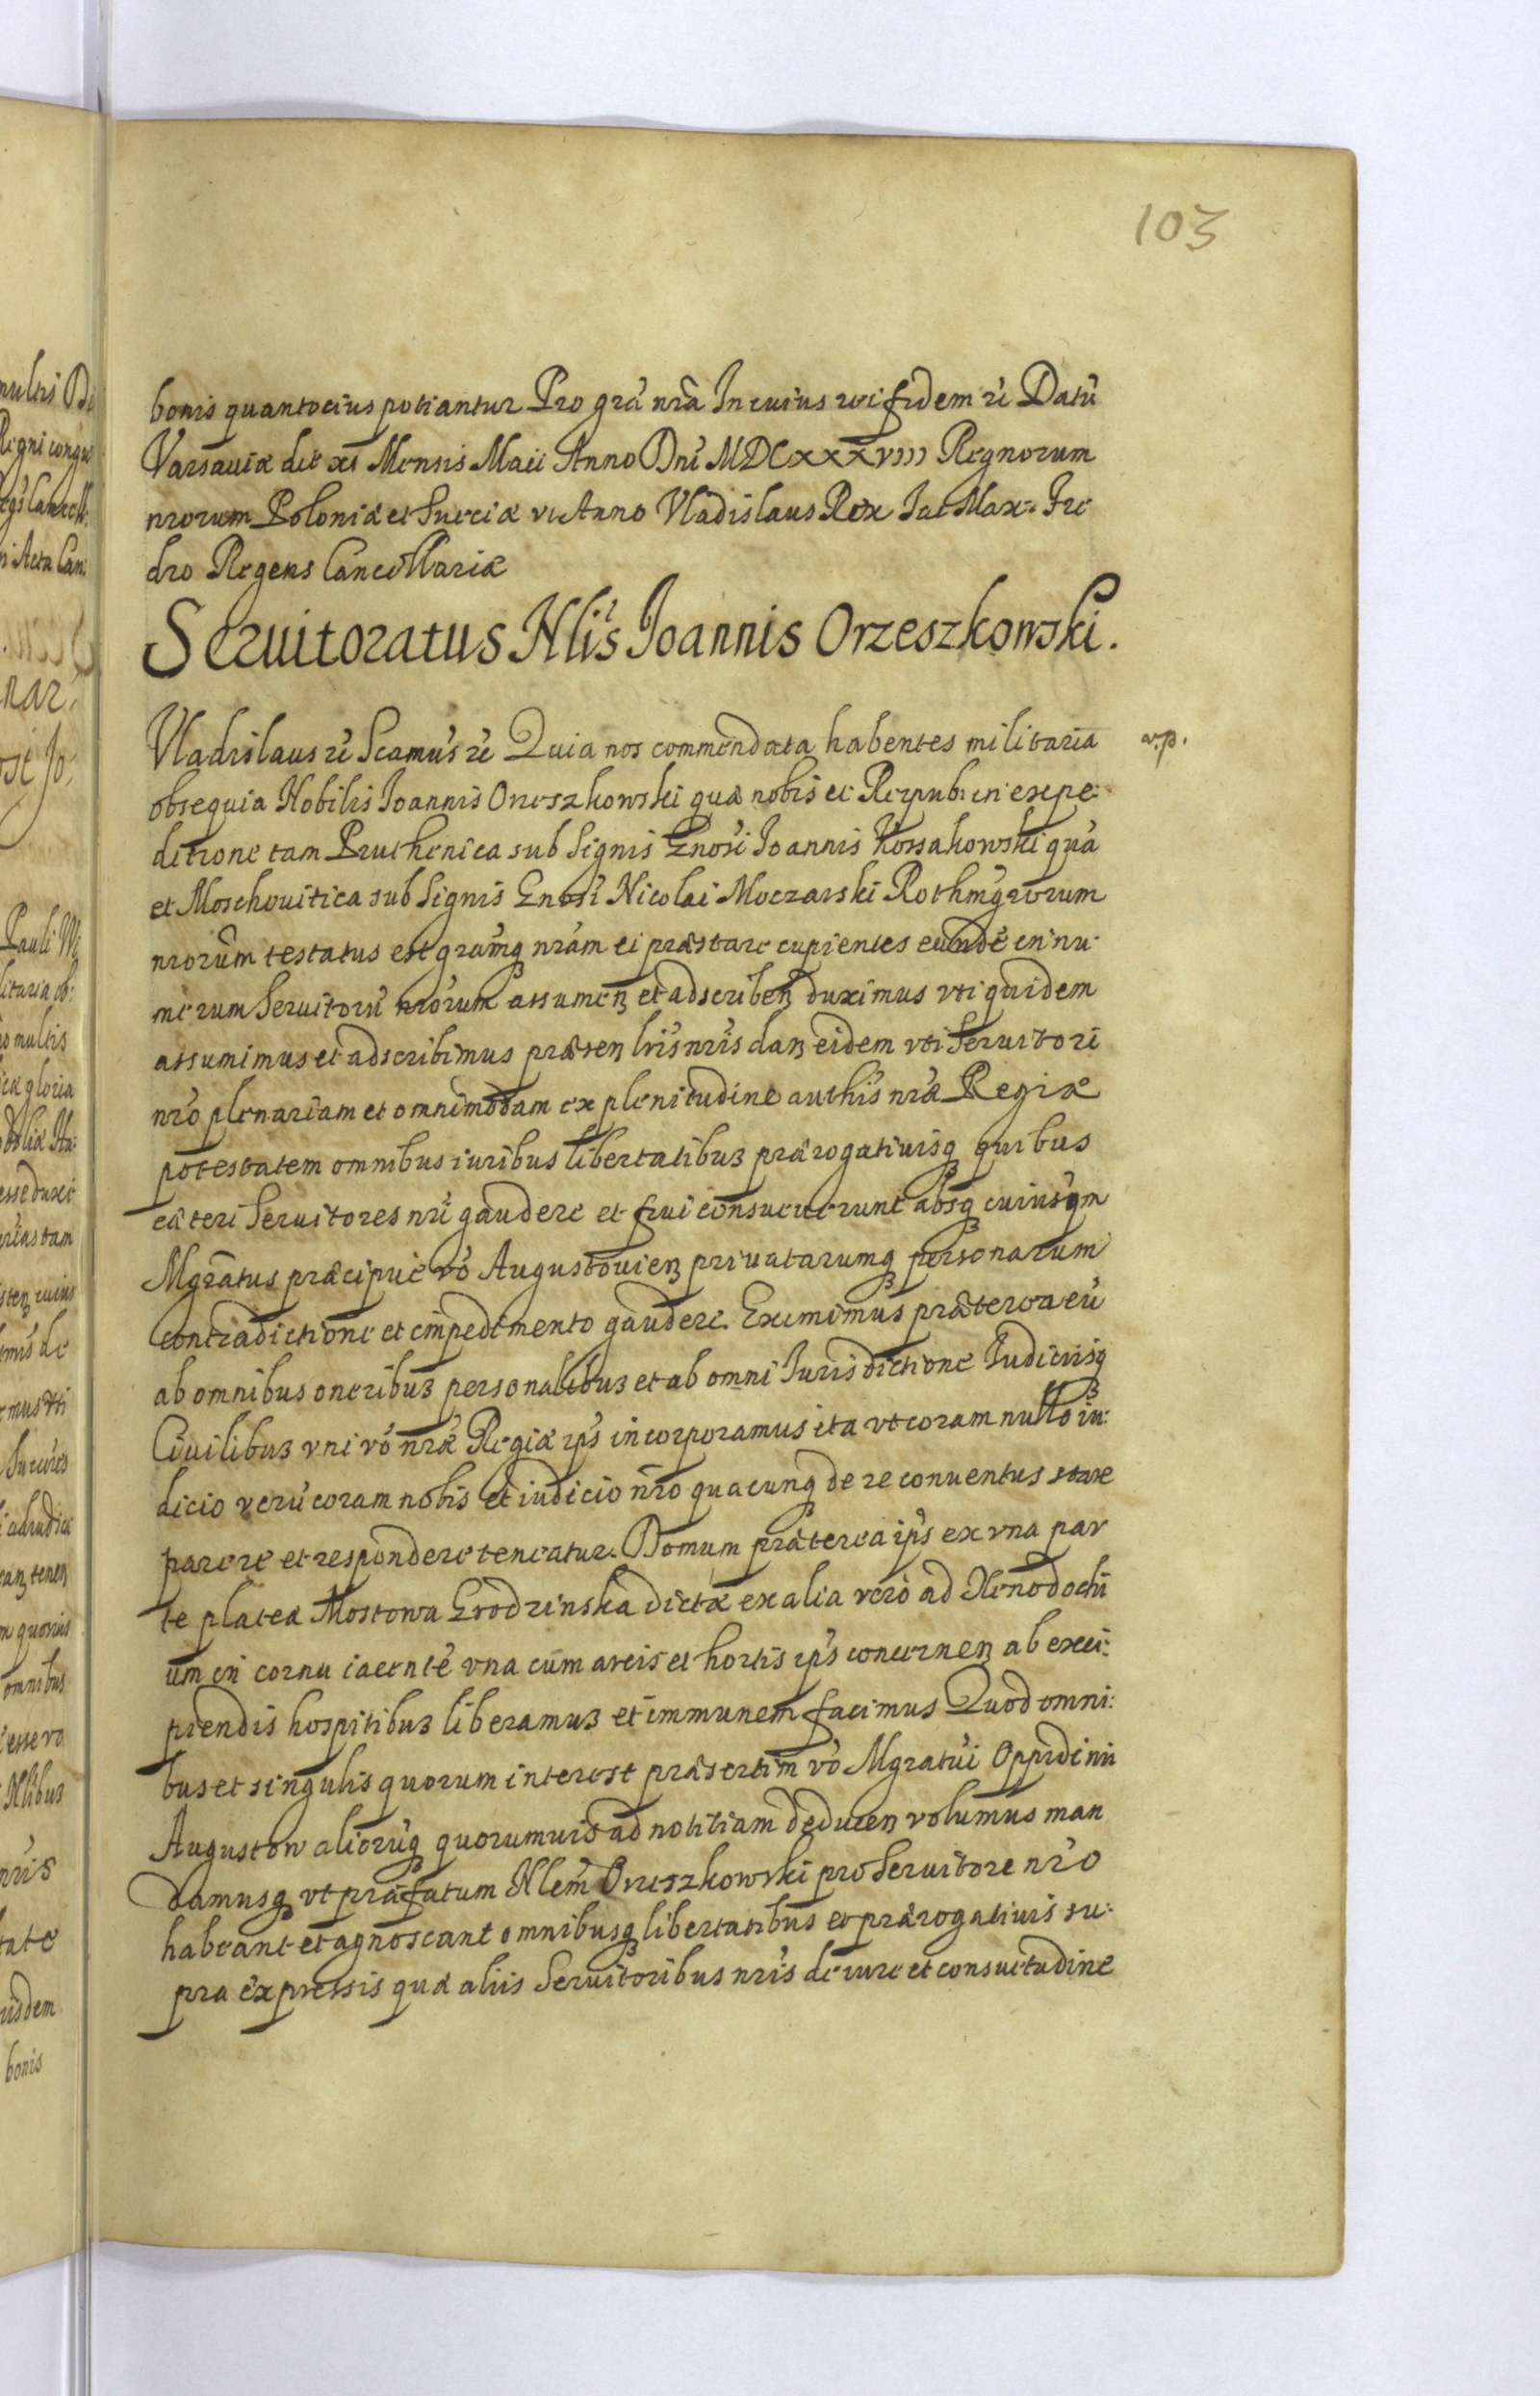 103
bonis quantocius potiantur Pro grã nrã In cuius rei fidem rẽ Datũ
Varsauiæ die xi Mensis Maii Anno Dnĩ MDCxxxviii Regnorum
nrorum Poloniæ et Sueciæ vi Anno Vladislaus Rex Iac Max: Fre
dro Regens Cancellariæ
Seruitoratus Nlis Joannis Orzeszkowski.
Vladislaus rẽ Scamus rẽ Quia nos commendata habentes militaria
v.p.
obsequia Nobilis Ioannis Orzeszkowski quæ nobis et Reipub: in expe:
ditione tam Pruthenica sub Signis Gnosi Ioannis Kossakowski quã
et Moschouitica sub Signis Gnosi Nicolai Moczarski Rothmgrorum
nrorum testatus est gramq nram ei præstare cupientes eundẽ in nu:
merum Seruitorũ nrorum assumenȝ et adscribenȝ duximus vti quidem
assumimus et adscribimus præsenȝ lris nris danȝ eidem vti Seruitori
nro plenariam et omnimodam ex plenitudine authis nræ Regiæ
potestatem omnibus iuribus libertatibuȝ prærogatiuisq quibus
cæteri Seruitores nri gaudere et frui consueuerunt absq cuiusqm
Mgratus præcipue vo Augustouienȝ priuatarumq personarum
contradictione et impedimento gaudere. Eximimus præterea eũ
ab omnibus oneribuȝ personalibuȝ et ab omni Iurisdictione Iudiciisq
Ciuilibuȝ vni vo nræ Regiæ ips incorporamus ita vt coram nullo iu:
dicio verũ coram nobis et iudicio nro quacunq de re conuentus stare
parere et respondere teneatur. Domum præterea ips ex vna par
te plateæ Mostowa Grodzinska dictæ ex alia vero ad Xenodochi
um in cornu iacentẽ vna cum areis et hortis ips concernenȝ ab exci:
piendis hospitibuȝ liberamuȝ et immunem facimus Quod omni:
bus et singulis quorum interest præsertim vo Mgratui Oppidi nri
Augustow aliorũq quorumuis ad notitiam deducenȝ volumus man
damusq vt præfatum Nlem Orzeszkowski pro Seruitore nro
habeant et agnoscant omnibusq libertatibus et prærogatiuis su:
pra expressis quæ aliis Seruitoribus nris de iure et consuetudine